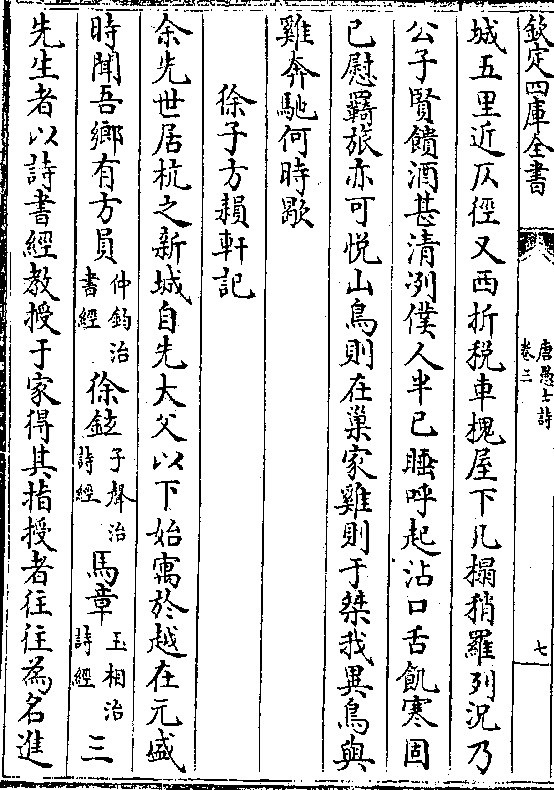 欽定四庫全書
唐愚士詩
卷三
七
城五里近仄徑又西折税車槐屋下几榻稍羅列況乃
公子賢饋酒甚清冽僕人半已睡呼起沾口舌飢寒固
已慰羇旅亦可悦山鳥則在巢家雞則于桀我異鳥與
雞奔馳何時歇
徐子方頼軒記
余先世居杭之新城自先大父以下始寓於越在元盛
時聞吾鄉有方員仲鈞治書經徐鉉子聲治詩經馬章玉相治詩經三
先生者以詩書經教授于家得其指授者往往為名進